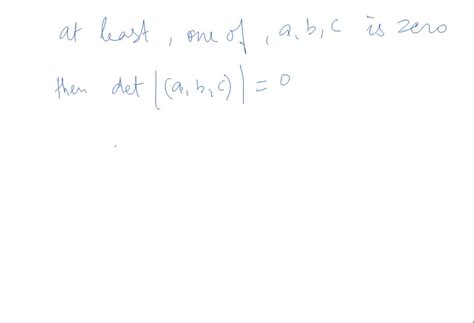 at least, one of, a, b, c is zero
then det |(a, b, c)| = 0